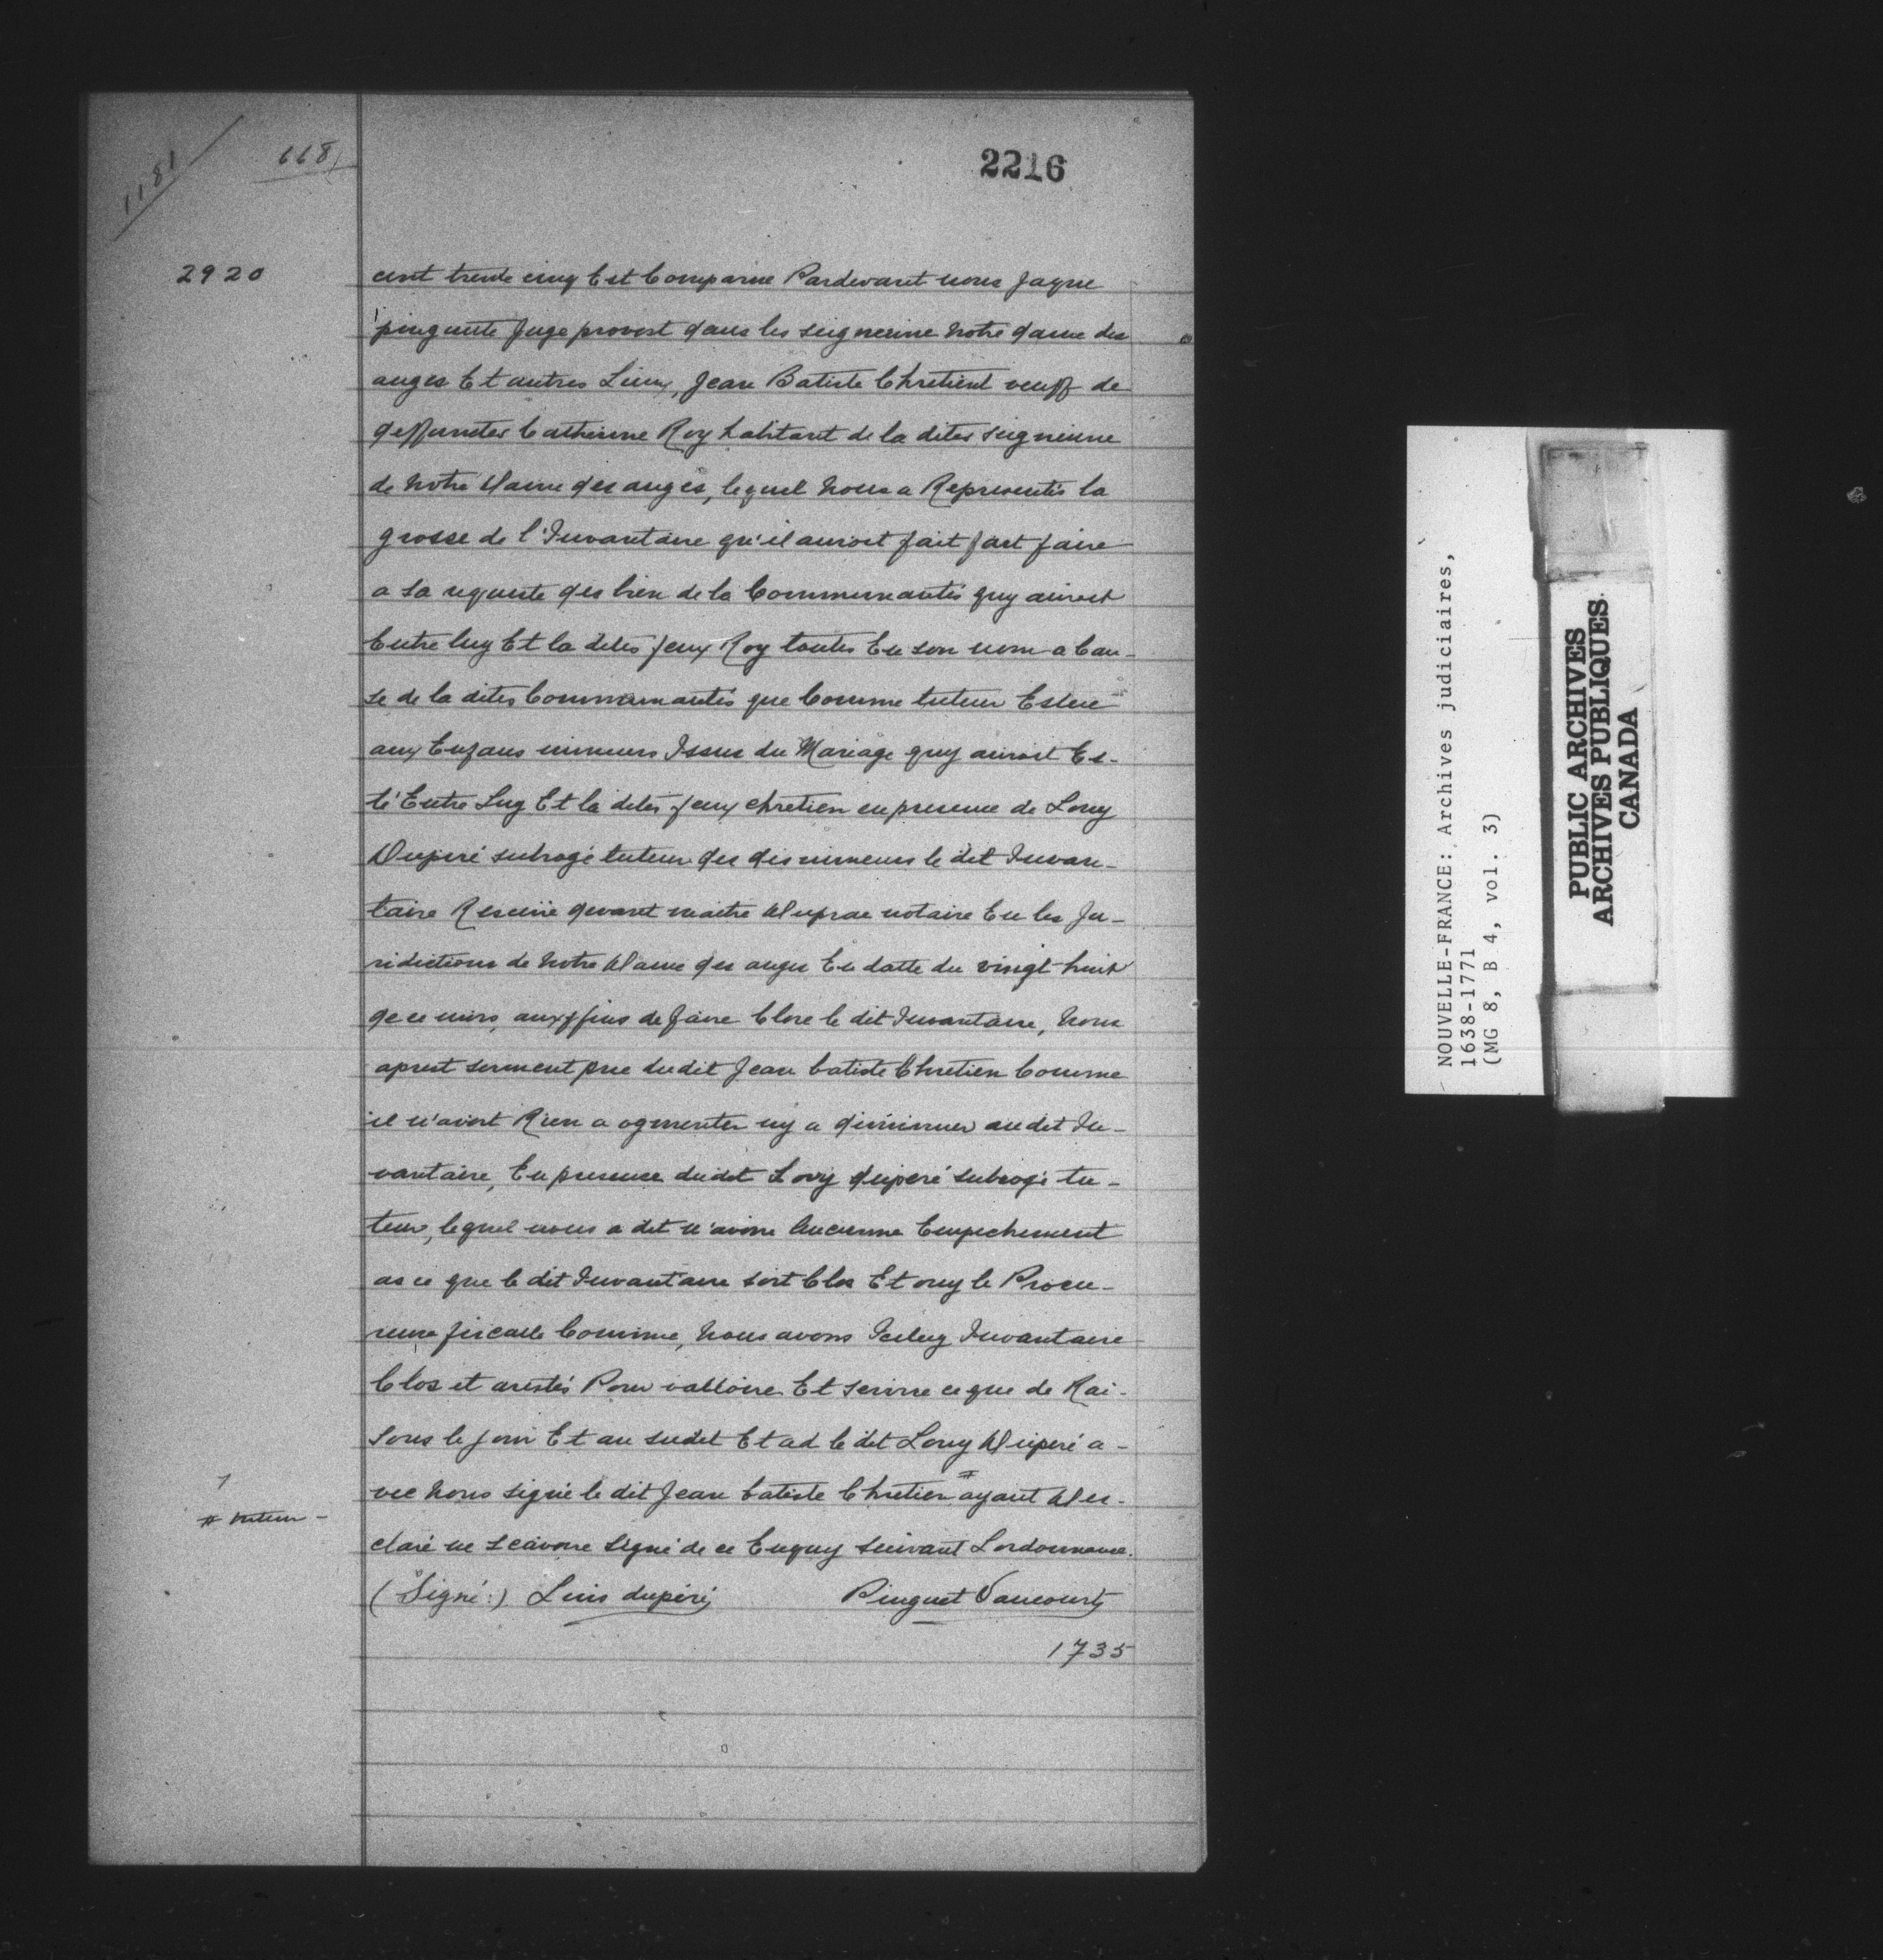 1181
118
2216
2920
cent trente cinq Est Comparue Pardevant nous Jaque
pinguete Juge provost dans les seigneurie notre dame des
anges Et autres Lieux, Jean Batiste Chretient veuff de
deffunctes Catherine Roy habitant de la dites seigneurie
de notre Dame des anges, lequel nous a Representés la
grosse de l'Invantaire qu'il auroit fait fait faire
a sa requeste des bien de la Communautés quy auroit
Entre luy Et la dites feux Roy toutes En son nom a Cau-
se de la dites Communautés que Comme tuteur Eslue
aux Enfans mineurs Issus du Mariage quy auroit Es-
té Entre Luy Et la dites feux chretien en presence de Louy
Duperé subrogé tuteur des dis mineurs le dit Invan-
taire Rescüe devant maitre Duprac notaire En les Ju-
ridictions de notre Dame des anges En datte du vingt huit
de ce mois, aux ffins de faire Clore le dit Invantaire, nous
aprest serment prie dudit Jean batiste Chretien Comme
il n'avoit Rien a ogmenter ny a diminuer audit In-
vantaire, En presence dudit Louy duperé subrogé tu-
teur, lequel nous a dit n'avoire Aucunne Empechement
as ce que le dit Invantaire soit Clos Et ouy le Procu-
reure fiscalle Comme, nous avons Iceluy Invantaire
Clos et arestés Pour valloire Et servire ce que de Rai-
sons le jour Et an sudit Et ad le dit Louy Duperé a-
vec nous signé le dit Jean batiste Chretien # ayant Des-
# tuteur -
claré ne scavoire signé de ce Enquy suivant Lordonnance.
(Signé:) Luis duperé Pinguet Vaucourt
1735
NOUVELLE-FRANCE: Archives judiciaires,
1638-1771
(MG 8, B 4, vol. 3)
PUBLIC ARCHIVES
ARCHIVES PUBLIQUES
CANADA